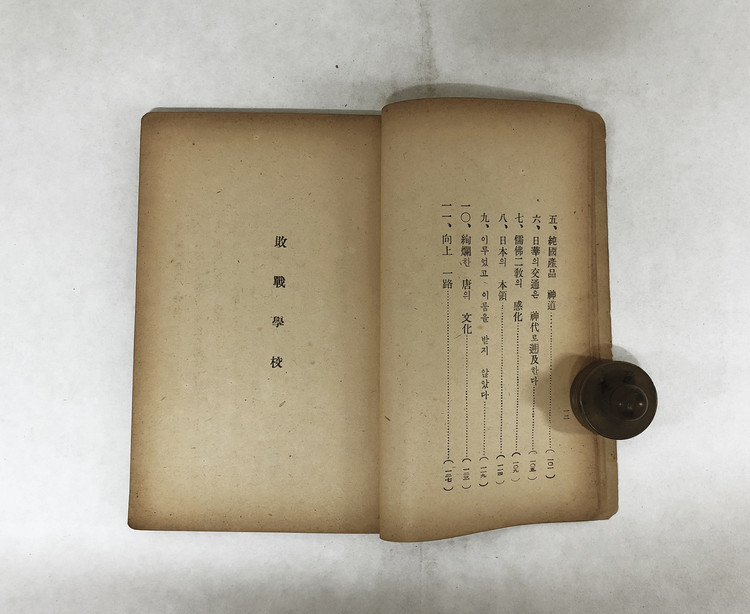 五、純國產品 神道……(一〇一)
六、日華의交通은 神代로遡及한다……(一〇五)
七、儒佛二敎의 感化……(一〇九)
八、日本의 本領……(一一四)
九、이루었고 이룸을 받지 않았다……(一一九)
一〇、絢爛한 唐의 文化……(一二三)
一一、向上 一路……(一二七)
敗戰學校